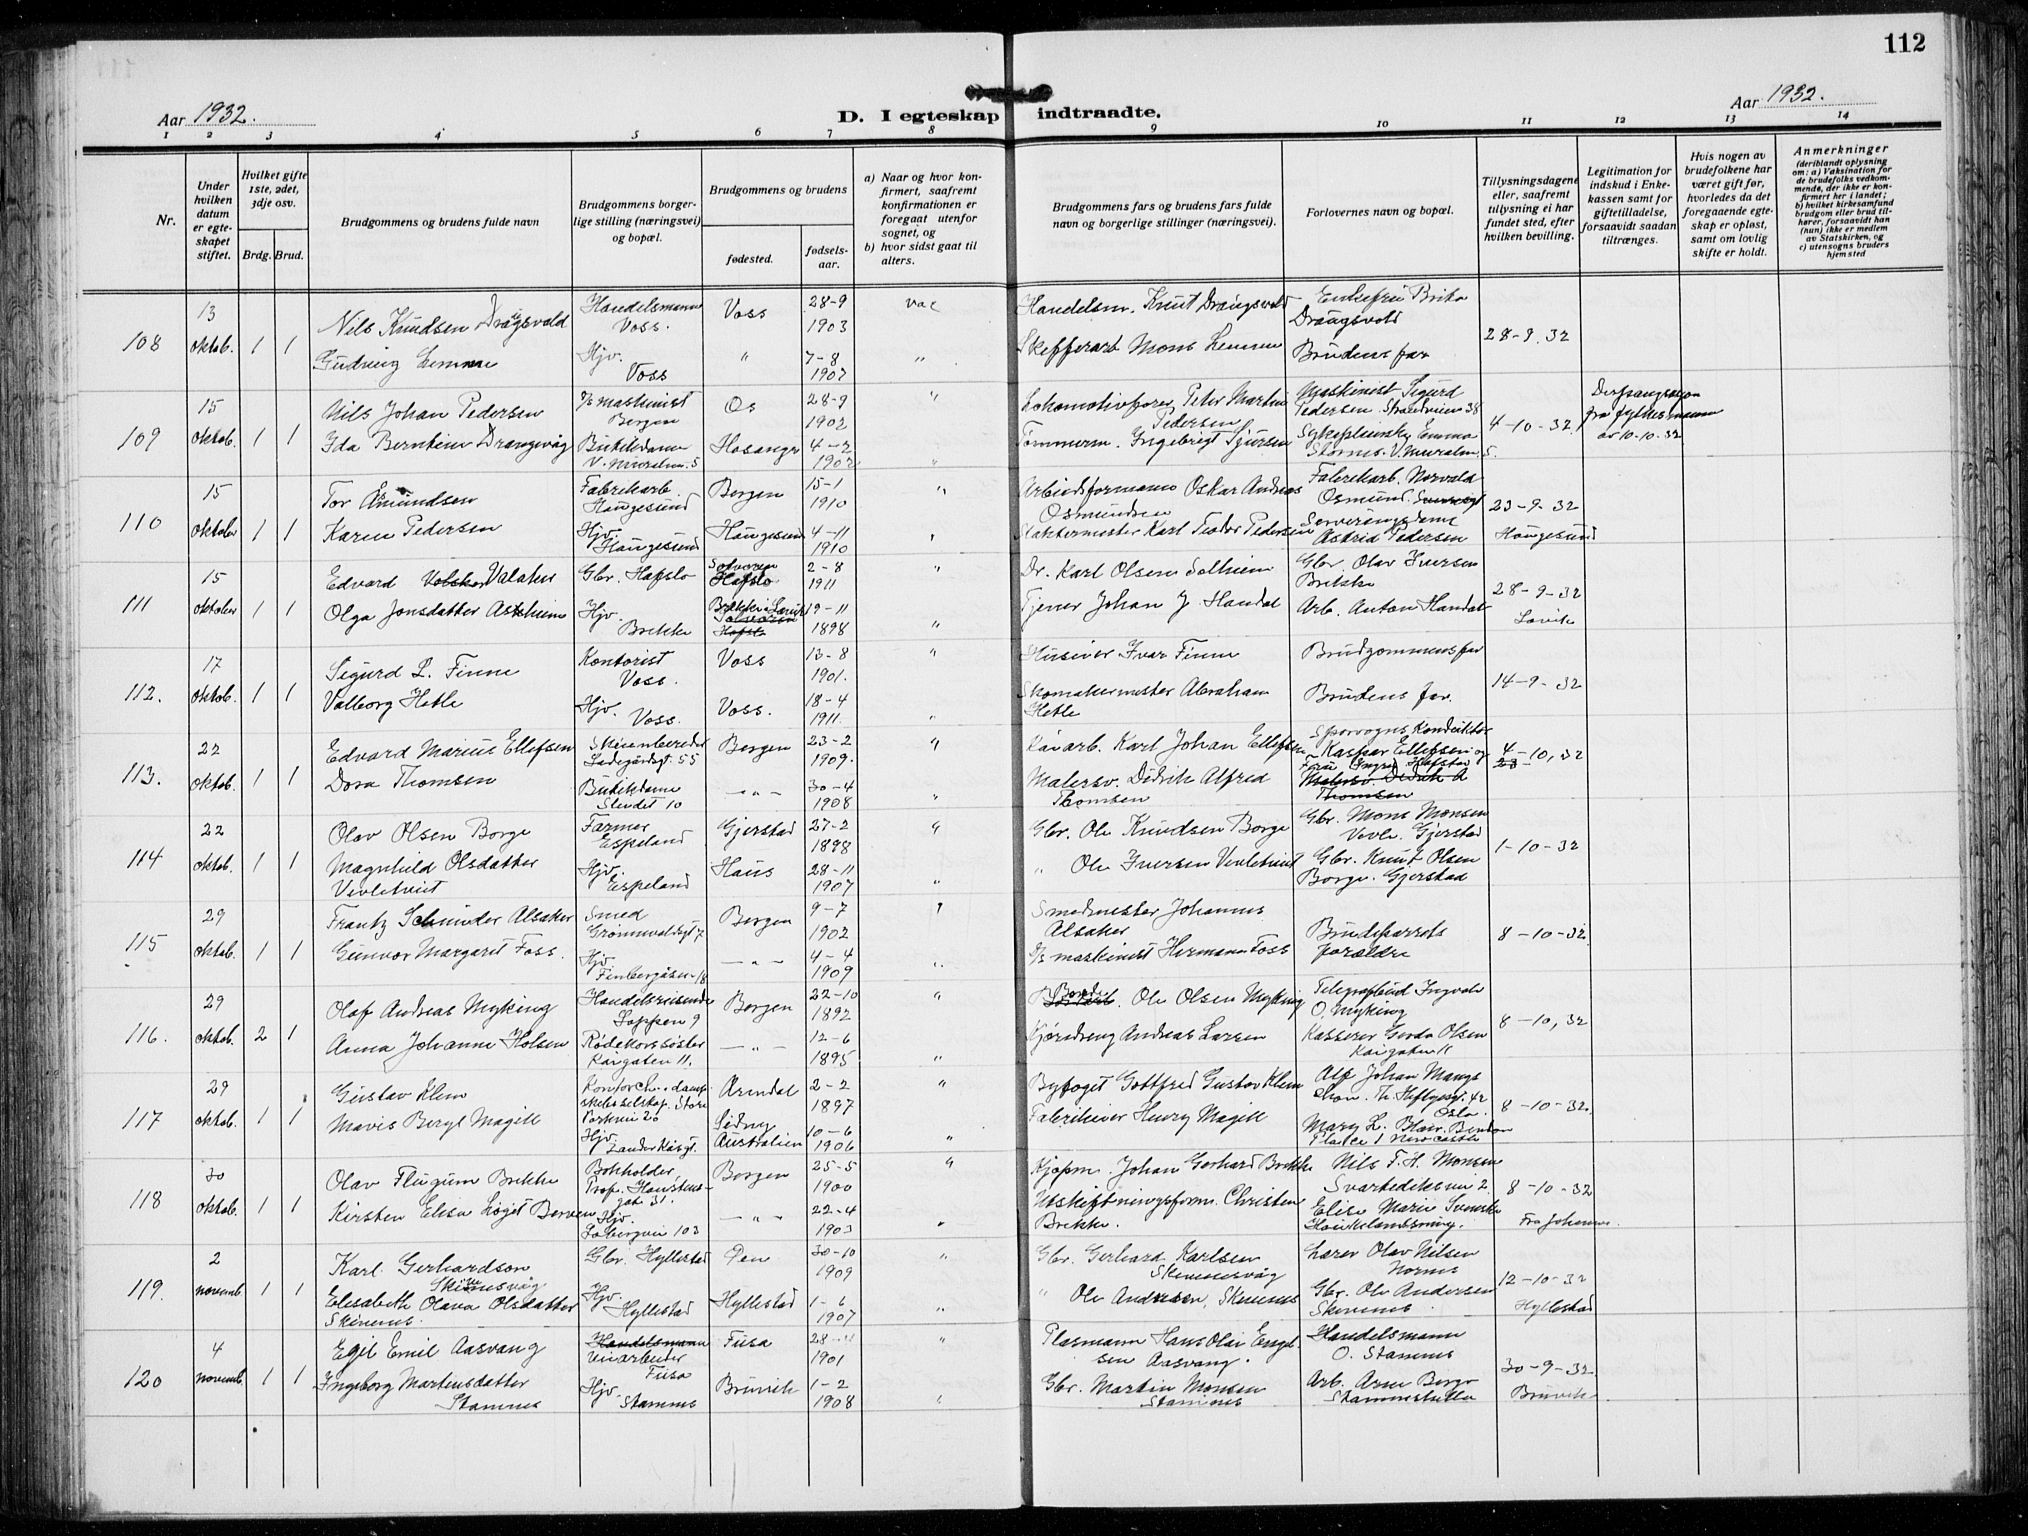 112
Aar 1932.
Aar 1932.
D. I egteskap indtraadte.
1 2 3 4 5 6 7 8 9 10 11 12 13 14
Nr.
Under hvilken datum er egteskapet stiftet.
Hvilket gifte 1ste, 2det, 3dje osv.
Brdg. Brud.
Brudgommens og brudens fulde navn
Brudgommens borgerlige stilling (næringsvei) og bopæl.
Brudgommens og brudens
fødested.
fødselsaar.
a) Naar og hvor konfirmert, saafremt konfirmationen er foregaat utenfor sognet, og
b) hvor sidst gaat til alters.
Brudgommens fars og brudens fars fulde navn og borgerlige stillinger (næringsvei).
Forlovernes navn og bopæl.
Tillysningsdagene eller, saafremt tillysning ei har fundet sted, efter hvilken bevilling.
Legitimation for indskud i Enkekassen samt for giftetilladelse, forsaavidt saadan tiltrænges.
Hvis nogen av brudefolkene har været gift før, hvorledes da det foregaaende egteskap er opløst, samt om lovlig skifte er holdt.
Anmerkninger
(deriblandt oplysning om: a) Vaksination for de brudefolks vedkommende, der ikke er konfirmert her i landet; b) hvilket kirkesamfund brudgom eller brud tilhører, forsaavidt han (hun) ikke er medlem av Statskirken, og c) utensogns bruders hjemsted
108 13 oktob. 1 1
Nils Knudsen Draugsvold Handelsmann Voss. Voss 28-9 1903 vac Handelsm. Knut Draugsvold Enkefru Brita Draugsvold
Gudveig Lemme Hjv. Voss " 7-8 1907 " Mons Lemme Brudens far 28-9.32
109 15 oktob. 1 1
Nils Johan Pedersen maskinist Bergen Os 28-9 1902 " Lokomotivfører Peter Martin Pedersen Maskinist Sigurd Pedersen Strandveien 38
Ida Drangevåg Butikdame Hosanger 4-2 1902 " Tømmerm. Ingebrigt Emma 4-10-32
fra fylkesmann av 10-10-32
110 15 oktober 1 1
Tor Osmundsen Fabrikarb. Haugesund Bergen 15-1 1910 " Arbeidsformann Oskar Andreas Osmundsen Fabrikarb. Norvald Osmund.
Karen Pedersen Hjv. Haugesund Haugesund 4-11 1910 " Karl Teodor Pedersen Serveringsdame Astrid Pedersen 23-9-32 Haugesund
111 15 oktober 1 1
Edvard Valaker Gbr. Hafslo Solvorn Hafslo 2-8 1911 " Karl Olsen Solheim Gbr. Olav Iversen Brekke
Olga Jonsdatter Hjv. Brekke Brekke i Lavik 19-11 1898 " Tjener Johan J. Handal Arb. Anton Handal 28-9-32 Lavik
112. 17 oktob. 1 1
Sigurd L. Finne Kontorist Voss. Voss 13-8 1901. " Huseier Ivar Finne Brudgommens far
Valborg Hetle Hjv. Voss. Voss. 18-4 1911. " Skomakermester Abraham Hetle Brudens far. 14-9-32
113. 22 oktob. 1 1
Edvard Marius Ellefsen Ladegårdsgt. 55 Bergen 23-2 1909. " Karl Johan Ellefsen Sporvogns Konduktør Kaspar Ellefsen og Fru
Dora Thomsen Butikdame Sundet 10 -"- 30-4 1908 " Malersv. Didrik Alfred Thomsen Malersv Didrik A Thomsen 4-10,32
114 22 oktob. 1 1
Olav Olsen Borge Farmer Espeland Gjerstad 27-2 1898 " Gbr. Ole Knudsen Borge Gbr. Mons Monsen Vevle. Gjerstad
Magnhild Olsdatter Vevletveit Hjv. Espeland Haus 28-11 1907 " " Ole Iversen Vevletveit Gbr. Knut Olsen Borge. Gjerstad 1-10-32
115 29 oktob. 1 1
Frantz Alsaker Smed Bergen 9-7 1902 " Smedmester Johannes Alsaker Brudeparrets forældre
Gunvor Margaret Foss. Hjv. -"- 4-4 1909 " maskinist Herman Foss 8-10-32
116. 29 oktob. 2 1
Olaf Andreas Myking Handelsreisende Loppen 9 Bergen 22-10 1892 " Bonde Ole Olsen Myking Telegrafbud Ingvald O. Myking
Anna Johanne Holsen Rødekorssøster Kaigaten 11. -"- 12-6 1895 " Kjøredreng Andreas Larsen Kasserer Gerda Olsen Kaigaten 11 8-10,32
117 29 oktob. 1 1
Gustav Klem Kontorch. i dampskibsselskap. Store Parkvei 20 Arendal 2-2 1897 " Byfoget Gottfred Gustav Klem Alf Johan Mangschou. Th. Heftyesgt. 42 Oslo.
Mavis Beryl Magill Hjv. Sidney Australien 10-6 1906 " Fabrikeier Henry Magill Mary L. Blair. Place 1 Newcastle 8-10-32
118 30 oktob. 1 1
Olav Flugum Brekke Bokholder. Prof. Hansteens gate 31. Bergen 25-5 1900 " Kjøpm. Johan Gerhard Brekke Nils T. H. Monsen Svartediksvei 2.
Kirsten Elisa Berven Hjv. 103 -"- 22-4 1903 " Utskiftningsform. Christen Brekke. Elise Marie Svenske 8-10-32 Fra Johannes.
119. 2 novemb. 1 1
Karl Gerhardson Skivenesvåg Gbr. Hyllestad Øen 30-10 1909 " Gbr. Gerhard Karlsen Skivenesvåg Lærer Olav Nilsen
Elisabeth Olava Olsdatter Skivenes. Hjv. Hyllestad Hyllestad 1-6 1907 " " Ole Andersen, Skivenes Gbr. Ole Andersen Skivenes. 12-10-32 Hyllestad
120 4 novemb. 1 1
Egil Emil Aasvang Handelsmann Veiarbeider Fusa Fusa 28- 1901 " Plasmann Hans Olai Engelsen Aasvang. Handelsmann O. Stamnes
Ingeborg Martinsdatter Stamnes Hjv. Stamnes Bruvik 1-2 1908 " Gbr. Martin Monsen Stamnes Arb. Arne Berge Stamneshella 30-9-32. Bruvik